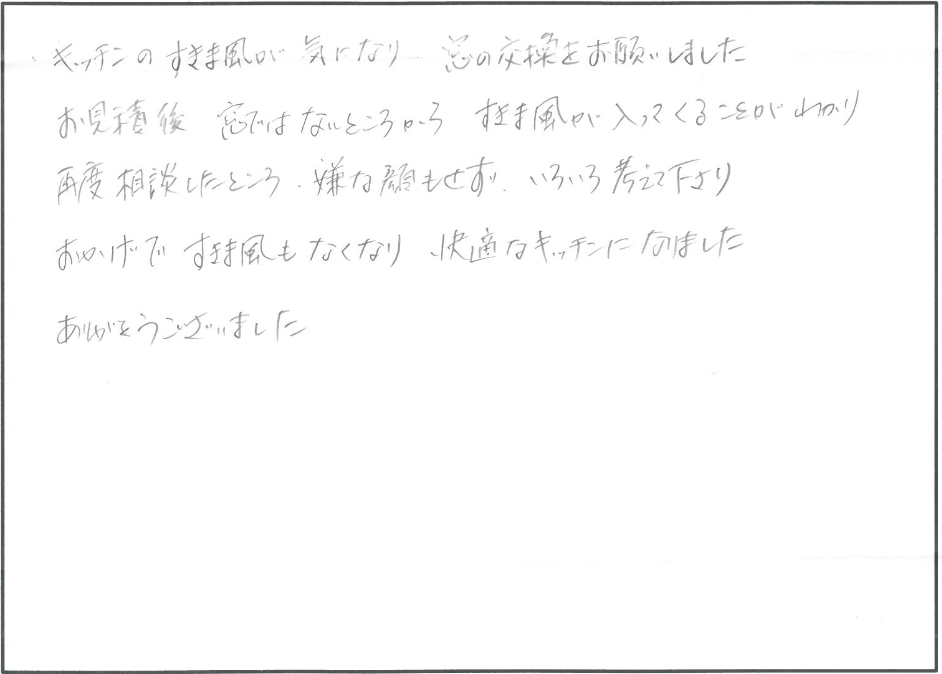 キッチンの すきま風が 気になり 窓の交換をお願いしました
お見積後 窓ではないところから すきま風が入ってくることがわかり
再度相談したところ、嫌な顔もせず、いろいろ考えて下さり
おかげで すきま風もなくなり、快適なキッチンになりました
ありがとうございました